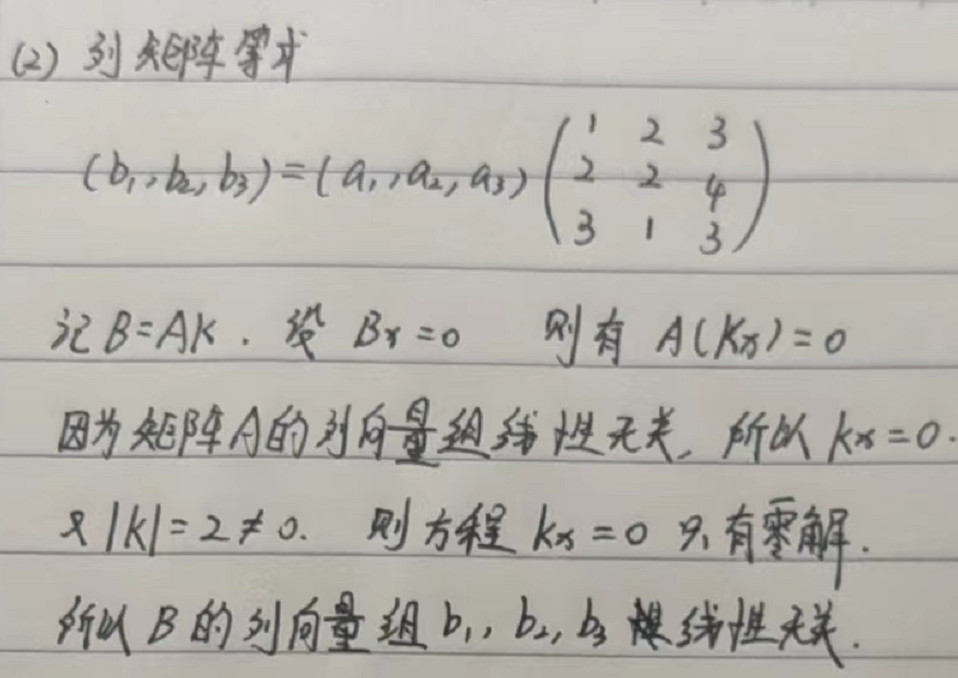 (2) 列矩阵等式
(b₁, b₂, b₃) = (a₁, a₂, a₃) ( 1 2 3
2 2 4
3 1 3 )
记 B=AK. 设 Bx=0 则有 A(Kx)=0
因为矩阵A的列向量组线性无关, 所以 Kx=0.
又 |K|=2≠0. 则方程 Kx=0 只有零解.
所以 B 的列向量组 b₁, b₂, b₃ 线性无关.